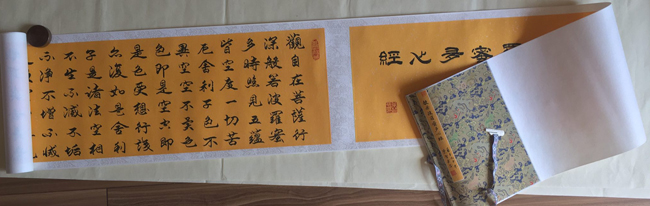 蜜多心經
觀自在菩薩行
深般若波羅蜜
多時照見五蘊
皆空度一切苦
厄舍利子色不
異空空不異色
色即是空空即
是色受想行識
亦復如是舍利
子是諸法空相
不生不滅不垢
不淨不增不減